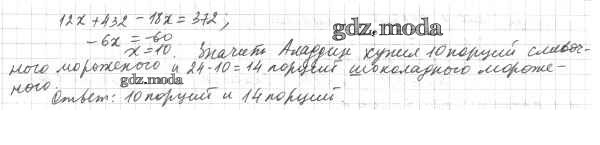 12x + 432 - 18x = 372;
gdz.moda
-6x = -60
x = 10. Значит Аладдин купил 10 порций сливоч-
ного мороженого и 24-10 = 14 порций шоколадного мороже-
gdz.moda
ного.
Ответ: 10 порций и 14 порций.